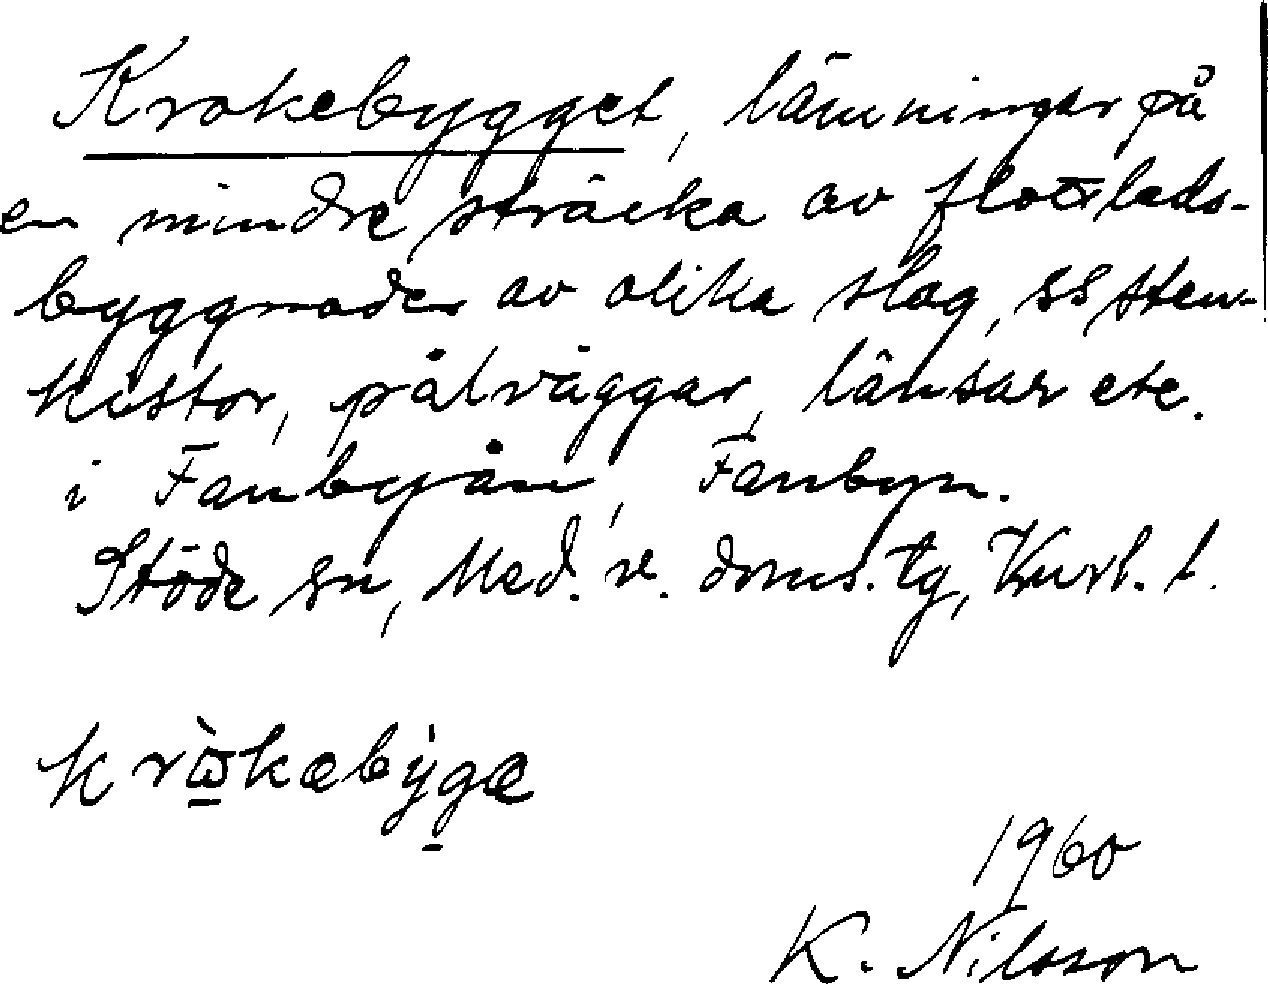 Krokebygget, lämningar på
en mindre sträcka av flottleds-
byggnader av olika slag, ss sten-
kistor, pålväggar, länsar etc.
i Fanbyån, Fanbyn.
Stöde sn, Med. v. doms. tg,
krὼkæbýgæ
1960
K. Nilsson